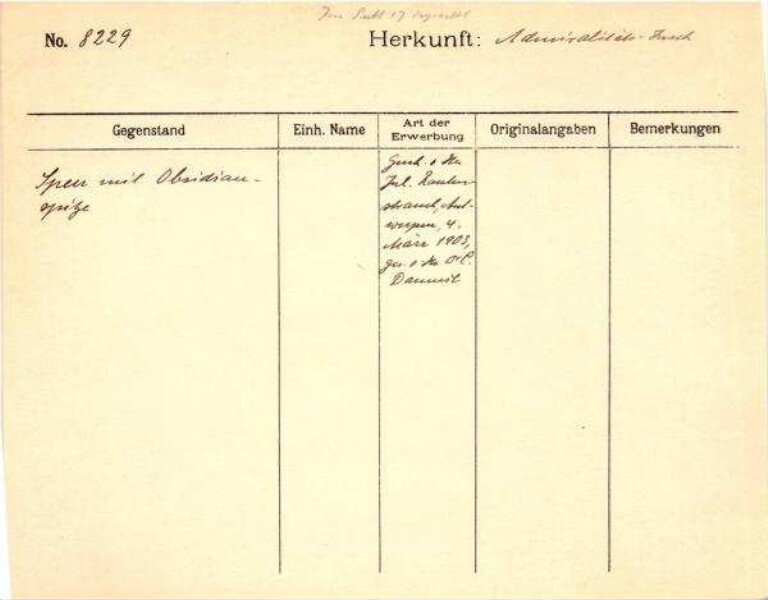 No. 8229
Herkunft: Admiralitäts-Inseln
Gegenstand
Einh. Name
Art der Erwerbung
Originalangaben
Bemerkungen
Speer mit Obsidian-
spitze
Gesch. v. Hn
Jul. Rauten-
strauch, Ant-
werpen, 4.
März 1903,
ges. v. Hn